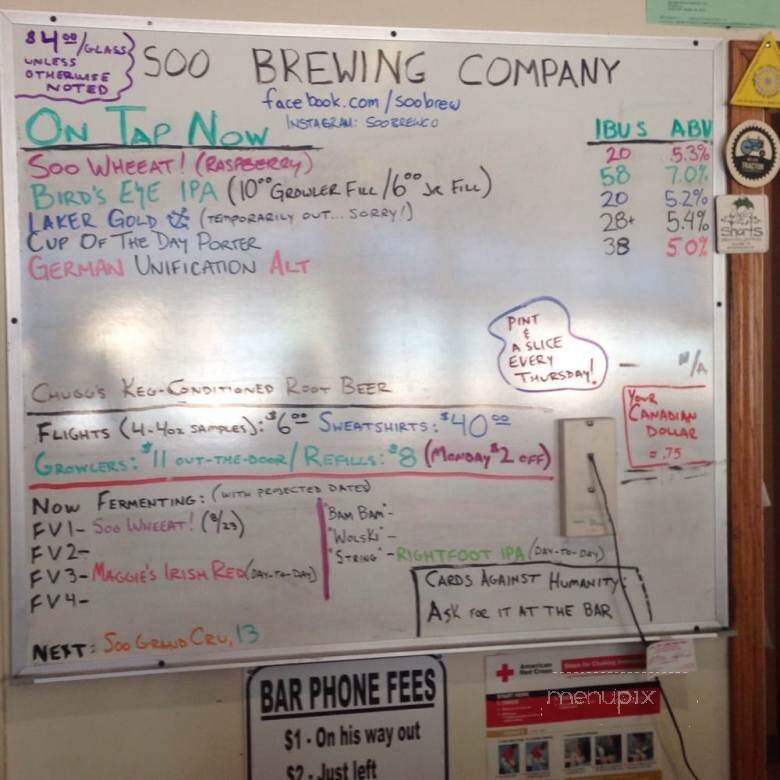 $4.00/GLASS
UNLESS
OTHERWISE
NOTED
SOO BREWING COMPANY
facebook.com/soobrew
INSTAGRAM: SOOBREWCO
ON TAP NOW IBUS ABV
SOO WHEEAT! (RASPBERRY) 20 5.3%
BIRD'S EYE IPA (10.00 GROWLER FILL/6.00 Jr FILL) 58 7.0%
LAKER GOLD (TEMPORARILY OUT... SORRY!) 20 5.2%
CUP OF THE DAY PORTER 28+ 5.4%
GERMAN UNIFICATION ALT 38 5.0%
PINT
&
A SLICE
EVERY
THURSDAY!
CHUGG'S KEG-CONDITIONED ROOT BEER — N/A
FLIGHTS (4-4oz SAMPLES): $6.00 SWEATSHIRTS: $40.00
GROWLERS: $11 OUT-THE-DOOR/REFILLS: $8 (MONDAY $2 OFF)
YOUR
CANADIAN
DOLLAR
= .75
NOW FERMENTING: (WITH PROJECTED DATES)
FV1- SOO WHEEAT! (8/23)
FV2-
FV3- MAGGIE'S IRISH RED (DAY-TO-DAY)
FV4-
"BAM BAM" -
"WOLSKI" -
"STRING" - RIGHTFOOT IPA (DAY-TO-DAY)
CARDS AGAINST HUMANITY:
ASK FOR IT AT THE BAR
NEXT: SOO GRAND CRU, 13
TRACTOR
Shorts
BAR PHONE FEES
$1 - On his way out
$2 - Just left
American
Red Cross
menupix